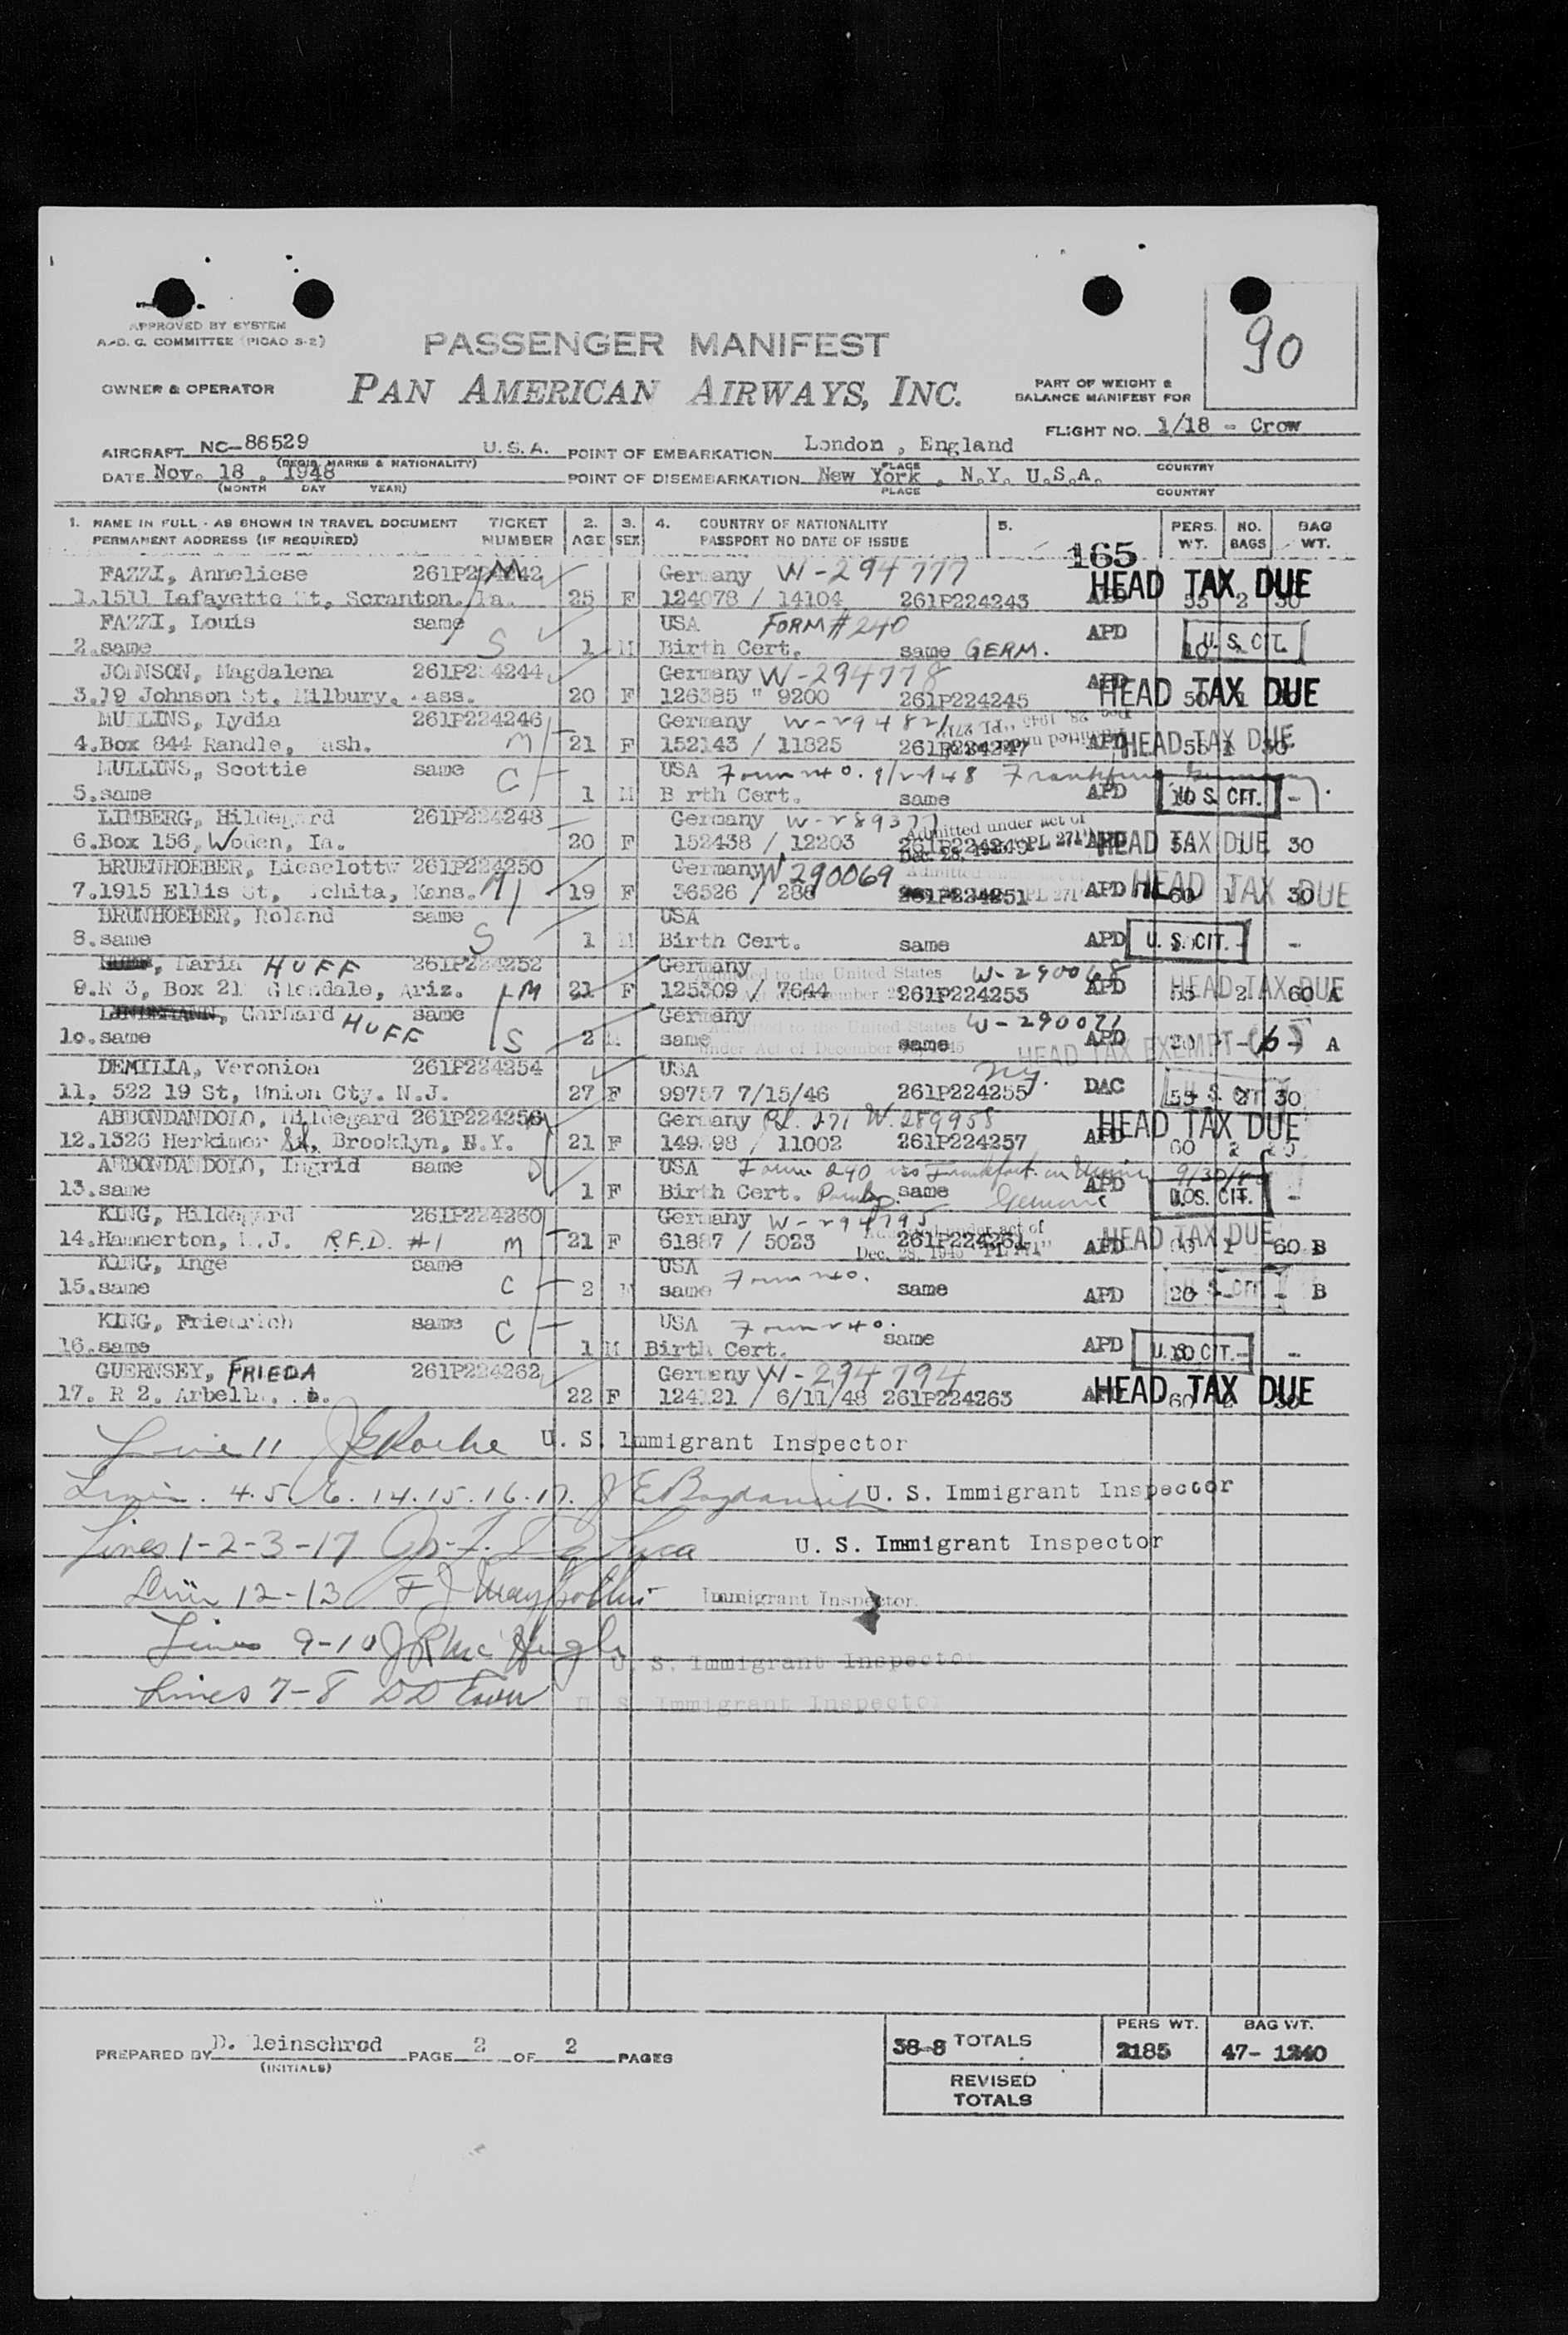 90
APPROVED BY SYSTEM
A.O.C. COMMITTEE (PICAO S-2)
PASSENGER MANIFEST
OWNER & OPERATOR
PAN AMERICAN AIRWAYS, INC.
PART OF WEIGHT &
BALANCE MANIFEST FOR
FLIGHT NO. 1/18 - Crow
AIRCRAFT NC-86529 U.S.A. POINT OF EMBARKATION London , England
(REGIS. MARKS & NATIONALITY) PLACE COUNTRY
DATE Nov. 18 , 1948 POINT OF DISEMBARKATION New York , N.Y. U.S.A.
(MONTH DAY YEAR) PLACE COUNTRY
1. NAME IN FULL - AS SHOWN IN TRAVEL DOCUMENT TICKET 2. 3. 4. COUNTRY OF NATIONALITY 5. PERS. NO. BAG
PERMANENT ADDRESS (IF REQUIRED) NUMBER AGE SEX PASSPORT NO DATE OF ISSUE WT. BAGS WT.
165
FAZZI, Anneliese 261P224242 M Germany W-294777 HEAD TAX DUE
1.1511 Lafayette St, Scranton, Pa. 25 F 124078 / 14104 261P224243 55 2 30
FAZZI, Louis same S USA FORM # 240 APD U. S. CIT.
2.same 1 M Birth Cert. same GERM. 10
JOHNSON, Magdalena 261P224244 Germany W-294778 APD HEAD TAX DUE
3.19 Johnson St. Milbury, Mass. 20 F 126385 " 9200 261P224245
MULLINS, Lydia 261P224246 Germany W-294821
4.Box 844 Randle, ash. M 21 F 152143 / 11825 261P224247 APD HEAD TAX DUE 55 1 30
MULLINS, Scottie same C USA Form 240. Frankfurt Germany
5.same 1 M B rth Cert. same APD U S. CIT. 10 -
LIMBERG, Hildegard 261P224248 Germany W-289377 Admitted under act of
6.Box 156, Woden, Ia. 20 F 152438 / 12203 261P224249 Dec. 28, 1945 "PL 271" APD HEAD TAX DUE 1 30
BRUENHOEBER, Lieselotte 261P224250 Germany W 290069
7.1915 Ellis St, chita, Kans. M 19 F 36526 / 286 261P224251 APD HEAD TAX DUE 60 1 30
BRUNHOEBER, Roland same S USA
8.same 1 M Birth Cert. same APD U. S. CIT. -
, Maria HUFF 261P224252 Germany W-290068
9.R 3, Box 21 Glendale, Ariz. M 21 F 125309 / 7644 261P224253 APD HEAD TAX DUE 55 2 60 A
LINDEMANN, Gerhard HUFF same Germany W-290071
10.same S 2 M same same APD HEAD TAX EXEMPT (6) 20 - - A
DEMILIA, Veronica 261P224254 USA
11. 522 19 St, Union Cty. N.J. 27 F 99757 7/15/46 261P224255 DAC U. S. CIT 55 2 30
ABBONDANDOLO, Hildegard 261P224256 Germany P.L. 271 W. 289958
12.1326 Herkimer St, Brooklyn, N.Y. 21 F 149 98 / 11002 261P224257 APD HEAD TAX DUE 60 2 20
ABBONDANDOLO, Ingrid same USA Form 240 iss Frankfurt
13.same 1 F Birth Cert. same APD U.S. CIT. -
KING, Hildegard 261P224260 Germany W-294795
14.Hammerton, N.J. R.F.D. #1 M 21 F 61887 / 5023 261P224261 Dec. 28, 1945 APD HEAD TAX DUE 1 60 B
KING, Inge same USA
15.same C 2 same Form 240. same APD U. S. CIT 20 - - B
KING, Friedrich same USA Form 240.
16.same C 1 M Birth Cert. same APD U. S. CIT. 10 - -
GUERNSEY, FRIEDA 261P224262 Germany W-294794
17. R 2, Arbell 22 F 124 21 / 6/11/48 261P224263 HEAD TAX DUE 60
Line 11 J E Roche U. S. Immigrant Inspector
Lines. 4.5.6. 14.15.16.17. U. S. Immigrant Inspector
Lines 1-2-3-17 De Luca U. S. Immigrant Inspector
Line 12-13 F J Immigrant Inspector
Lines 9-10 J R McHugh U. S. Immigrant Inspector
Lines 7-8 U S Immigrant Inspector
PREPARED BY D. leinschrod PAGE 2 OF 2 PAGES
(INITIALS)
38-8 TOTALS PERS WT. 2185 BAG WT. 47- 1240
REVISED
TOTALS